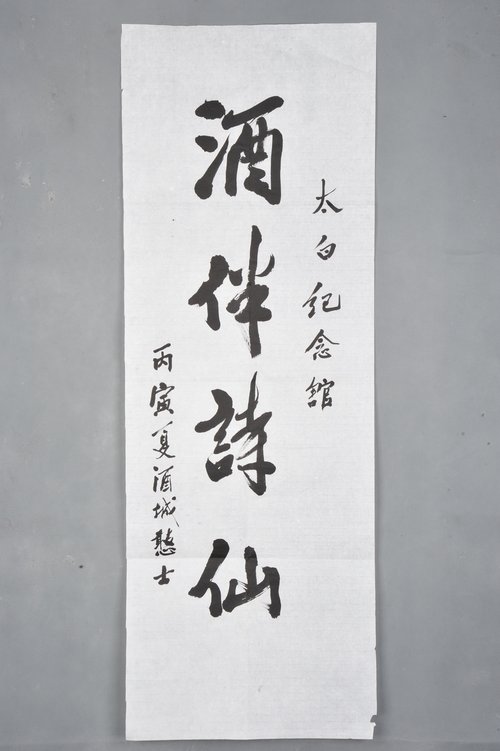 太白紀念館
酒伴詩仙
丙寅夏酒城憨士